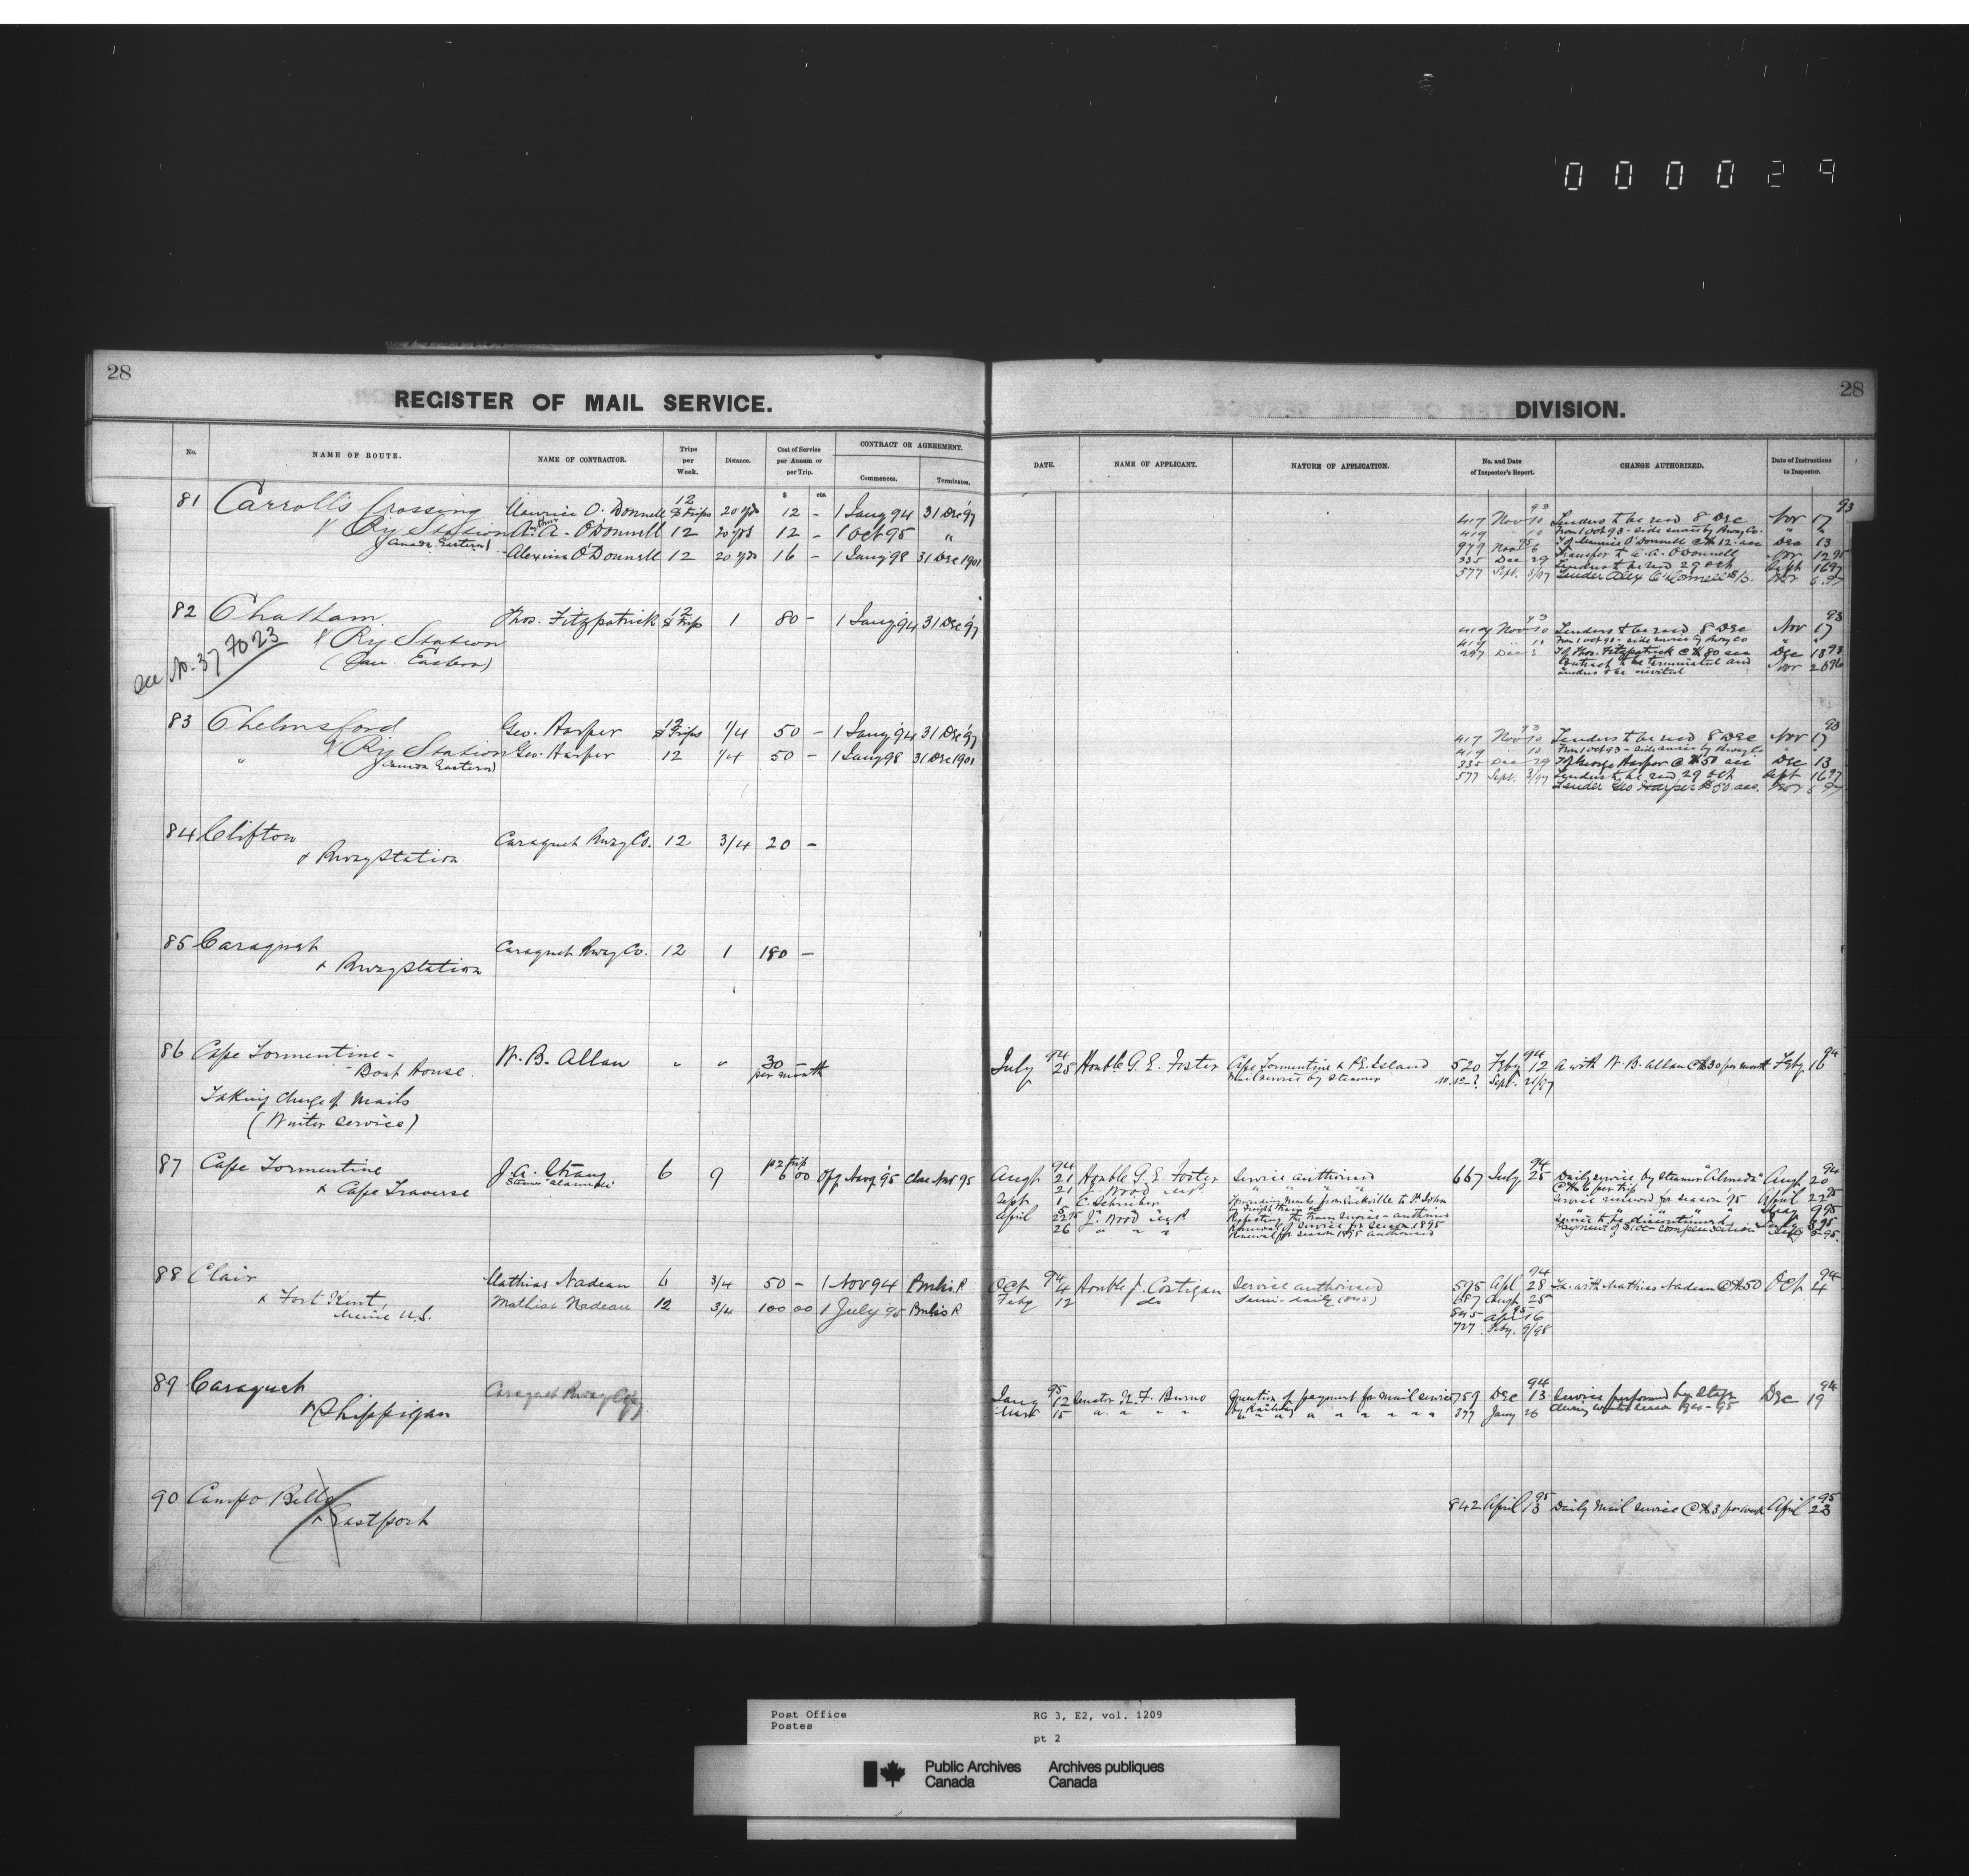 000029
28
REGISTER OF MAIL SERVICE.
No.
NAME OF ROUTE.
NAME OF CONTRACTOR.
Trips per Week.
Distance.
Cost of Service per Annum or per Trip.
CONTRACT OR AGREEMENT.
Commences.
Terminates.
$ cts.
81 Carroll's Crossing Maurice O'Donnell 12 Trips 20 yds 12 - 1 Jany 94 31 Dec 97
& Ry Station A. A. O'Donnell 12 20 yds 12 - 1 Oct 95 "
(Canada Eastern) Alexina O'Donnell 12 20 yds 16 - 1 Jany 98 31 Dec 1901
82 Chatham Thos. Fitzpatrick 12 Trips 1 80 - 1 Jany 94 31 Dec 97
& Ry Station
(Can. Eastern)
See No. 37 7023
83 Chelmsford Geo. Harper 12 Trips 1/4 50 - 1 Jany 94 31 Dec 97
& Ry Station Geo. Harper 12 1/4 50 - 1 Jany 98 31 Dec 1901
" (Canada Eastern)
84 Clifton Caraquet Rway Co. 12 3/4 20 -
& Rway Station
85 Caraquet Caraquet Rway Co. 12 1 180 -
& Rway Station
86 Cape Tormentine - W. B. Allan " " 30 -
Boat House. per month
Taking charge of Mails
(Winter service)
87 Cape Tormentine J. A. Strang 6 9 p trip 6 00 Close Nov 95
& Cape Traverse
88 Clair Mathias Nadeau 6 3/4 50 - 1 Nov 94
& Fort Kent, Mathias Nadeau 12 3/4 100 00 1 July 95
Maine U.S.
89 Caraquet Caraquet Rway Coy
& Shippigan
90 Campo Bello
& Eastport
28
DIVISION.
DATE.
NAME OF APPLICANT.
NATURE OF APPLICATION.
No. and Date of Inspector's Report.
CHANGE AUTHORIZED.
Date of Instructions to Inspector.
93 93
417 Nov 10 Tenders to be recd 8 Dec Nov 17
419 " 10 From 1 Oct 93 - side service by Rway Co. "
T of Maurice O'Donnell @ $12 acc Dec 13
979 Nov 6 Transfer to A. A. O'Donnell Nov 12 95
335 Dec 29 Tenders to be recd 29 Oct Sept 16 97
577 Sept. 3/97
93 93
417 Nov 10 Tenders to be recd 8 Dec Nov 17
419 " 10 From 1 Oct 93 - side service by Rway Co "
297 Dec T of Thos. Fitzpatrick @ $80 acc Dec 13 93
Contract to be terminated and Nov 26 96
tenders to be invited
93 93
417 Nov 10 Tenders to be recd 8 Dec Nov 17
419 10 From 1 Oct 93 - side service by Rway Co "
335 Dec 29 T of George Harper @ $50 acc Dec 13
577 Sept. 3/97 Tenders to be recd 29 Oct Sept 16 97
Tender Geo Harper $50 acc. Nov 6 97
94 94 94
July 25 Honble G. E. Foster Cape Tormentine & P.E. Island 520 Feby 12 A with W. B. Allan @ $30 per month Feby 16
Mail service by Steamer Sept. 21/97
94 94 94
Augt 21 Honble G. E. Foster Service authorised 667 July 25 Daily service by Steamer "Almeda" Augt 20
@ $6 per trip
Sept 1 E. Schreiber Forwarding mails from Sackville to St. John Service renewed for season '95 April 22 95
by freight train
April 22 95 J. Wood Service to be discontinued
26 " " " Renewal of service for season 1895
Renewal for season 1895 authorised
94 94 94
Oct 4 Honble J. Costigan Service authorised 595 Apl 28 Ta. with Mathias Nadeau @ $50 Oct 4
Feby 12 do Semi-daily 687 Augt 25
845 Apl 16
727 Feby. 9/98
95 94 94
Jany 12 Senator K. F. Burns Question of payment for mail service 759 Dec 13 Service performed by Stage Dec 19
by Railway during winter season 94-95
Mar 15 " " " " 377 Jany 26
95 95
842 April 13 Daily Mail service @ $3 per week April 23
Post Office
Postes
RG 3, E2, vol. 1209
pt 2
Public Archives
Canada
Archives publiques
Canada